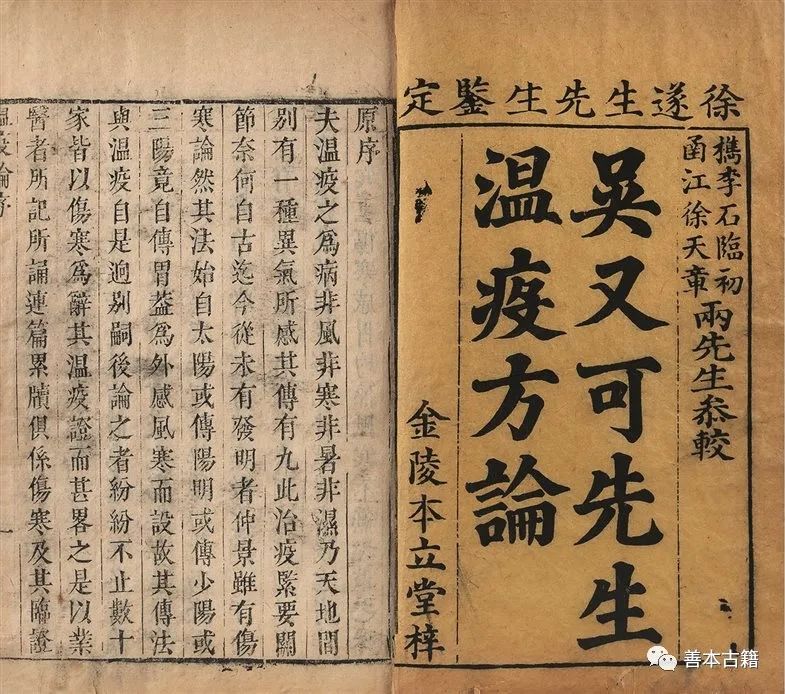 徐遂生先生鑒定
檇李石臨初
甬江徐天章
兩先生叅較
吳又可先生
温疫方論
金陵本立堂梓
原序
夫温疫之為病非風非寒非暑非濕乃天地間
别有一種異氣所感其傳有九此治疫緊要關
節奈何自古迄今從未有發明者仲景雖有傷
寒論然其法始自太陽或傳陽明或傳少陽或
三陽竟自傳胃葢為外感風寒而設故其傳法
與温疫自是迥别嗣後論之者紛紛不止數十
家皆以傷寒為辭其温疫證而甚畧之是以業
醫者所記所誦連篇累牘俱係傷寒及其臨證
温疫論序
一
善本古籍